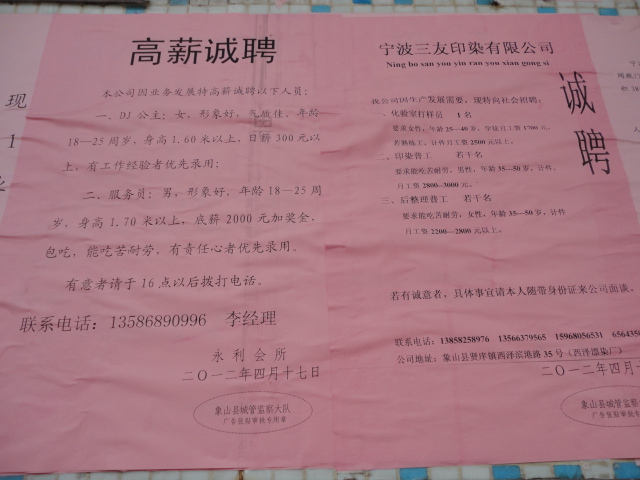 现
1
高薪诚聘
本公司因业务发展特高薪诚聘以下人员:
一、DJ 公主: 女, 形象好, 气质佳, 年龄
18—25 周岁, 身高 1.60 米以上, 日薪 300 元以
上, 有工作经验者优先录用;
二、服务员: 男, 形象好, 年龄 18—25 周
岁, 身高 1.70 米以上, 底薪 2000 元加奖金,
包吃, 能吃苦耐劳、有责任心者优先录用。
有意者请于 16 点以后拨打电话。
联系电话: 13586890996 李经理
永利会所
二〇一二年四月十七日
象山县城管监察大队
广告张贴审批专用章
宁波三友印染有限公司
Ning bo san you yin ran you xian gong si
诚聘
我公司因生产发展需要, 现特向社会招聘:
一、化验室打样员 1 名
要求女性, 年龄 25—40 岁, 学徒月工资 1700 元,
若熟练工, 计件月工资 2500 元以上。
二、印染普工 若干名
要求能吃苦耐劳, 男性, 年龄 35—50 岁, 计件
月工资 2800—3000 元。
三、后整理普工 若干名
要求能吃苦耐劳, 女性, 年龄 35—50 岁, 计件
月工资 2200—2800 元以上。
若有诚意者, 具体事宜请本人随带身份证来公司面谈。
联系电话: 13858258976 13566379565 15968056531 6564350
公司地址: 象山县贤庠镇西泽滨港路 35 号 (西泽漂染厂)
二〇一二年四月
象山县城管监察
广告张贴审批专用